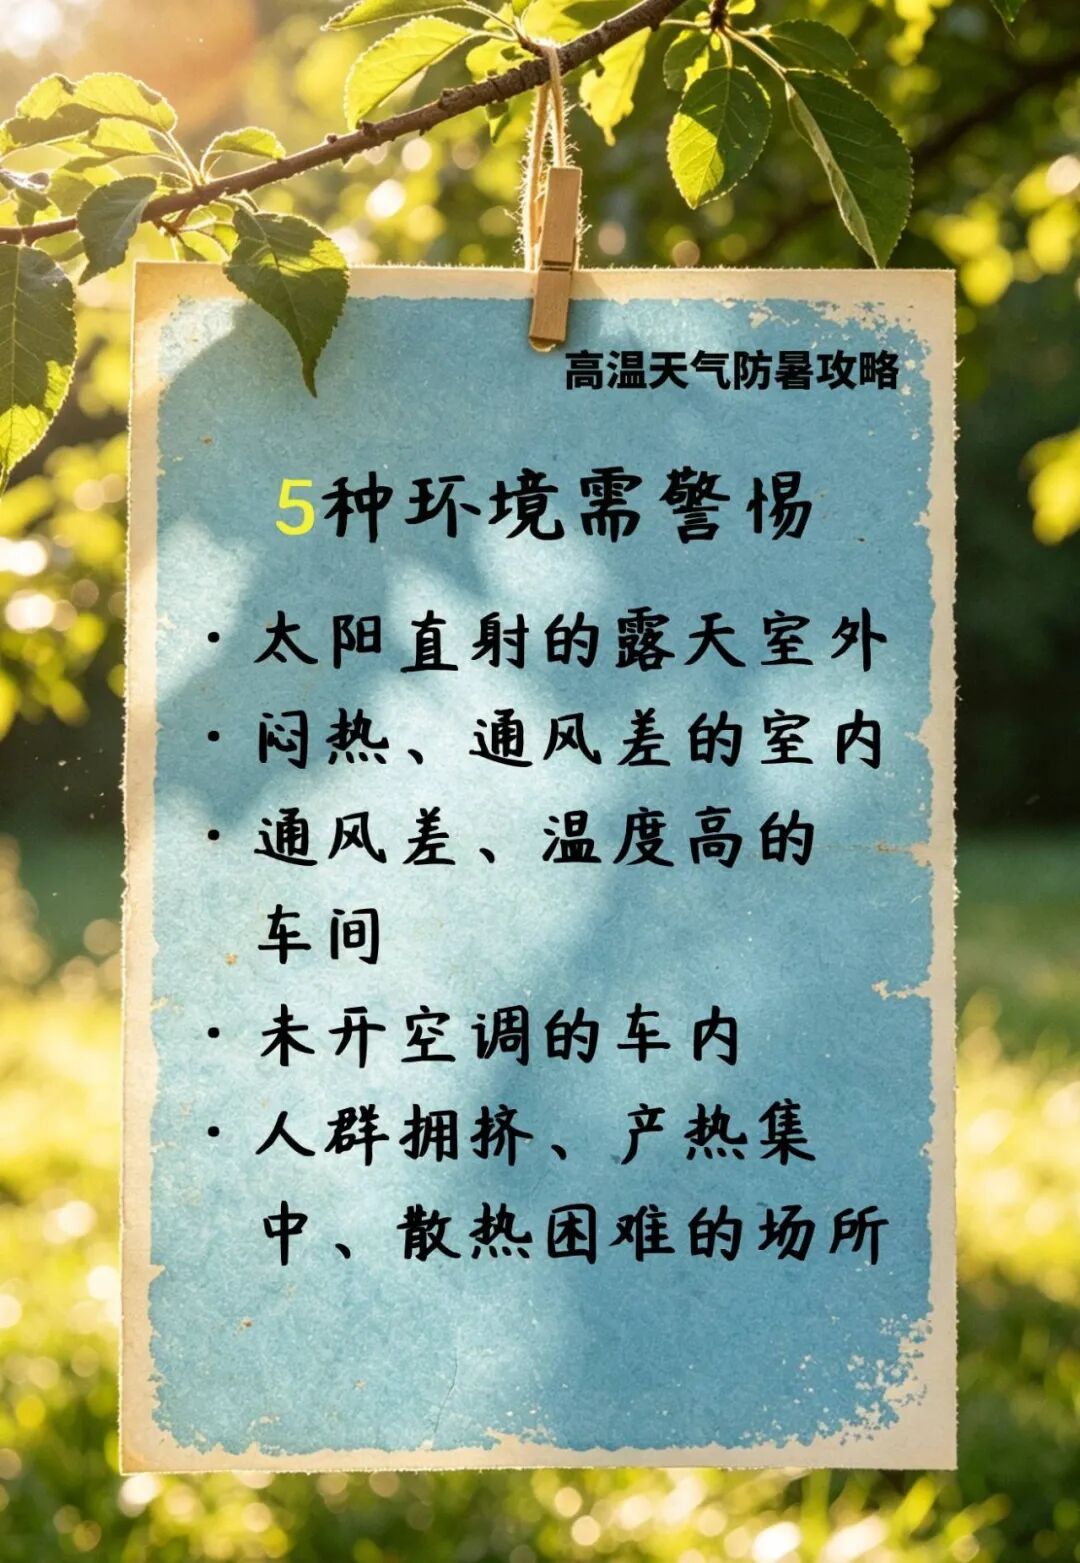 高温天气防暑攻略
5种环境需警惕
· 太阳直射的露天室外
· 闷热、通风差的室内
· 通风差、温度高的
车间
· 未开空调的车内
· 人群拥挤、产热集
中、散热困难的场所